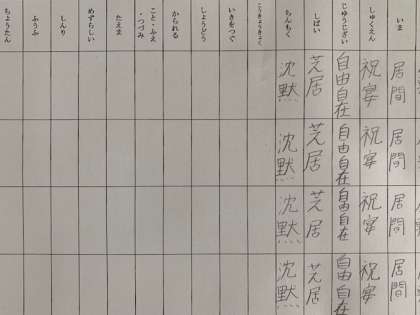 いま
居間
居間
居間
居間
しゅくえん
祝宴
祝宴
祝宴
祝宴
じゆうじざい
自由自在
自由自在
自由自在
自由自在
しばい
芝居
芝居
芝居
芝居
ちんもく
沈黙
沈黙
沈黙
沈黙
こうきょうきょく
いきをつぐ
しょうどう
かられる
こと・ふえ
・つづみ
たえま
めずらしい
しんり
ふうふ
ちょうたん